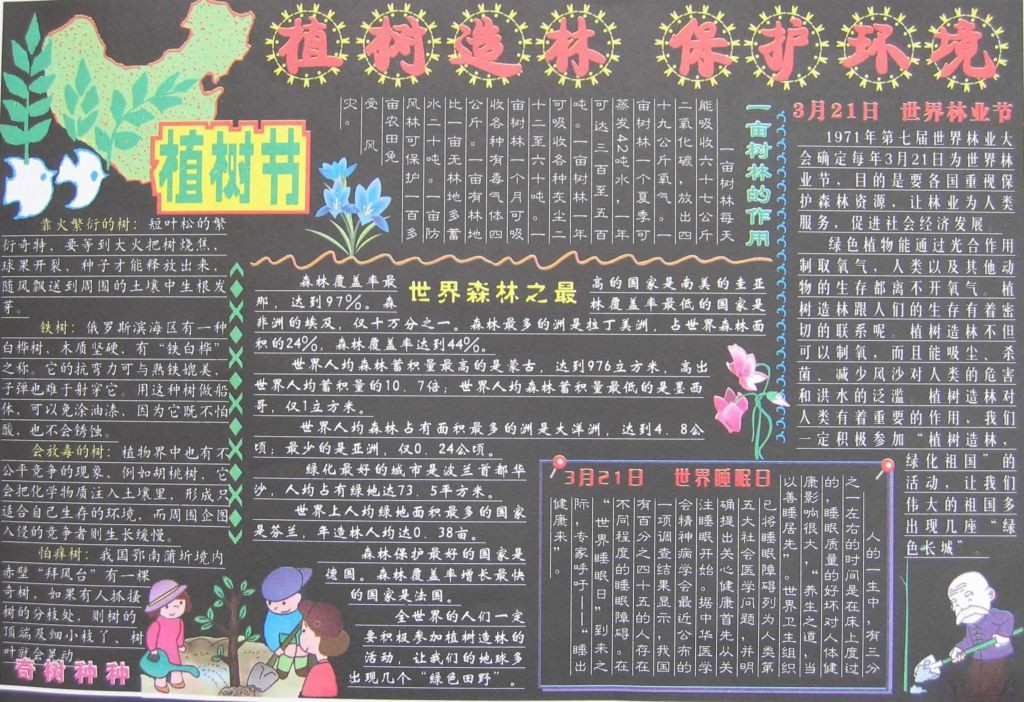 植树造林 保护环境
植树节
靠火繁衍的树：短叶松的繁
衍奇特，要等到大火把树烧焦，
球果开裂，种子才能释放出来，
随风飘送到周围的土壤中生根发
芽。
铁树：俄罗斯滨海区有一种
白桦树，木质坚硬，有“铁白桦”
之称。它的抗弯力可与熟铁媲美，
子弹也难于射穿它。用这种树做船
体，可以免涂油漆，因为它既不怕
酸，也不会锈蚀。
会放毒的树：植物界中也有不
公平竞争的现象，例如胡桃树，它
会把化学物质注入土壤里，形成只
适合自己生存的环境，而周围企图
入侵的竞争者则生长缓慢。
怕痒树：我国鄂南蒲圻境内
赤壁“拜风台”有一棵
奇树，如果有人抓搔
树的分枝处，则树的
顶端及细小枝丫、树
叶就会晃动
奇树种种
一亩树林的作用
一亩树林每天
能吸收六十七公斤
二氧化碳，放出四
十九公斤氧气。一
亩树林一个夏季可
蒸发42吨水，一年
可达三百至五百
吨。一亩树林一年
可吸收各种灰尘二
十二至六十吨。一
亩树林一个月可吸
收各种有毒气体四
公斤。一亩有林地
比一亩无林地多蓄
水二十吨。一亩防
风林可保护一百多
亩农田免
受风
灾。
世界森林之最
森林覆盖率最高的国家是南美的圭亚
那，达到97%。森林覆盖率最低的国家是
非洲的埃及，仅十万分之一。森林最多的洲是拉丁美洲，占世界森林面
积的24%，森林覆盖率达到44%。
世界人均森林蓄积量最高的是蒙古，达到976立方米，高出
世界人均蓄积量的10.7倍；世界人均森林蓄积量最低的是墨西
哥，仅1立方米。
世界人均森林占有面积最多的洲是大洋洲，达到4.8公
顷；最少的是亚洲，仅0.24公顷。
绿化最好的城市是波兰首都华
沙，人均占有绿地达73.5平方米。
世界上人均绿地面积最多的国家
是芬兰，年造林人均达0.38亩。
森林保护最好的国家是
德国。森林覆盖率增长最快
的国家是法国。
全世界的人们一定
要积极参加植树造林的
活动，让我们的地球多
出现几个“绿色田野”。
3月21日 世界林业节
1971年第七届世界林业大
会确定每年3月21日为世界林
业节，目的是要各国重视保
护森林资源，让林业为人类
服务，促进社会经济发展。
绿色植物能通过光合作用
制取氧气，人类以及其他动
物的生存都离不开氧气。植
树造林跟人们的生存有着密
切的联系呢。植树造林不但
可以制氧，而且能吸尘、杀
菌、减少风沙对人类的危害
和洪水的泛滥。植树造林对
人类有着重要的作用，我们
一定积极参加“植树造林，
绿化祖国”的
活动，让我们
伟大的祖国多
出现几座“绿
色长城”。
3月21日 世界睡眠日
人的一生中，有三分
之一左右的时间是在床上度过
的，睡眠质量的好坏对人体健
康影响很大，“养生之道，当
以善睡居先”。世界卫生组织
已将睡眠障碍列为人类第
五大社会医学问题，并明
确提出关心健康首先从关
注睡眠开始。据中华医学
会精神病学会最近公布的
一项调查结果显示，我国
有百分之四十五的人存在
不同程度的睡眠障碍。在
“世界睡眠日”到来之
际，专家呼吁——“睡出
健康来”。